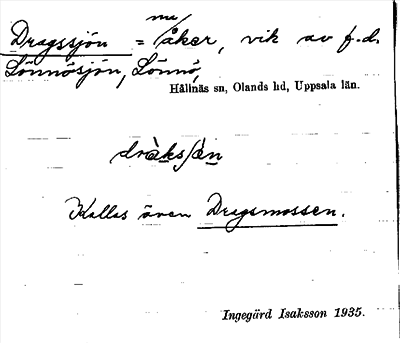 Dragssjön = nu åker, vik av f.d.
Lönnösjön, Lönnö,
Hållnäs sn, Olands hd, Uppsala län.
dràksʃàn
Kallas även Dragsmossen.
Ingegärd Isaksson 1935.